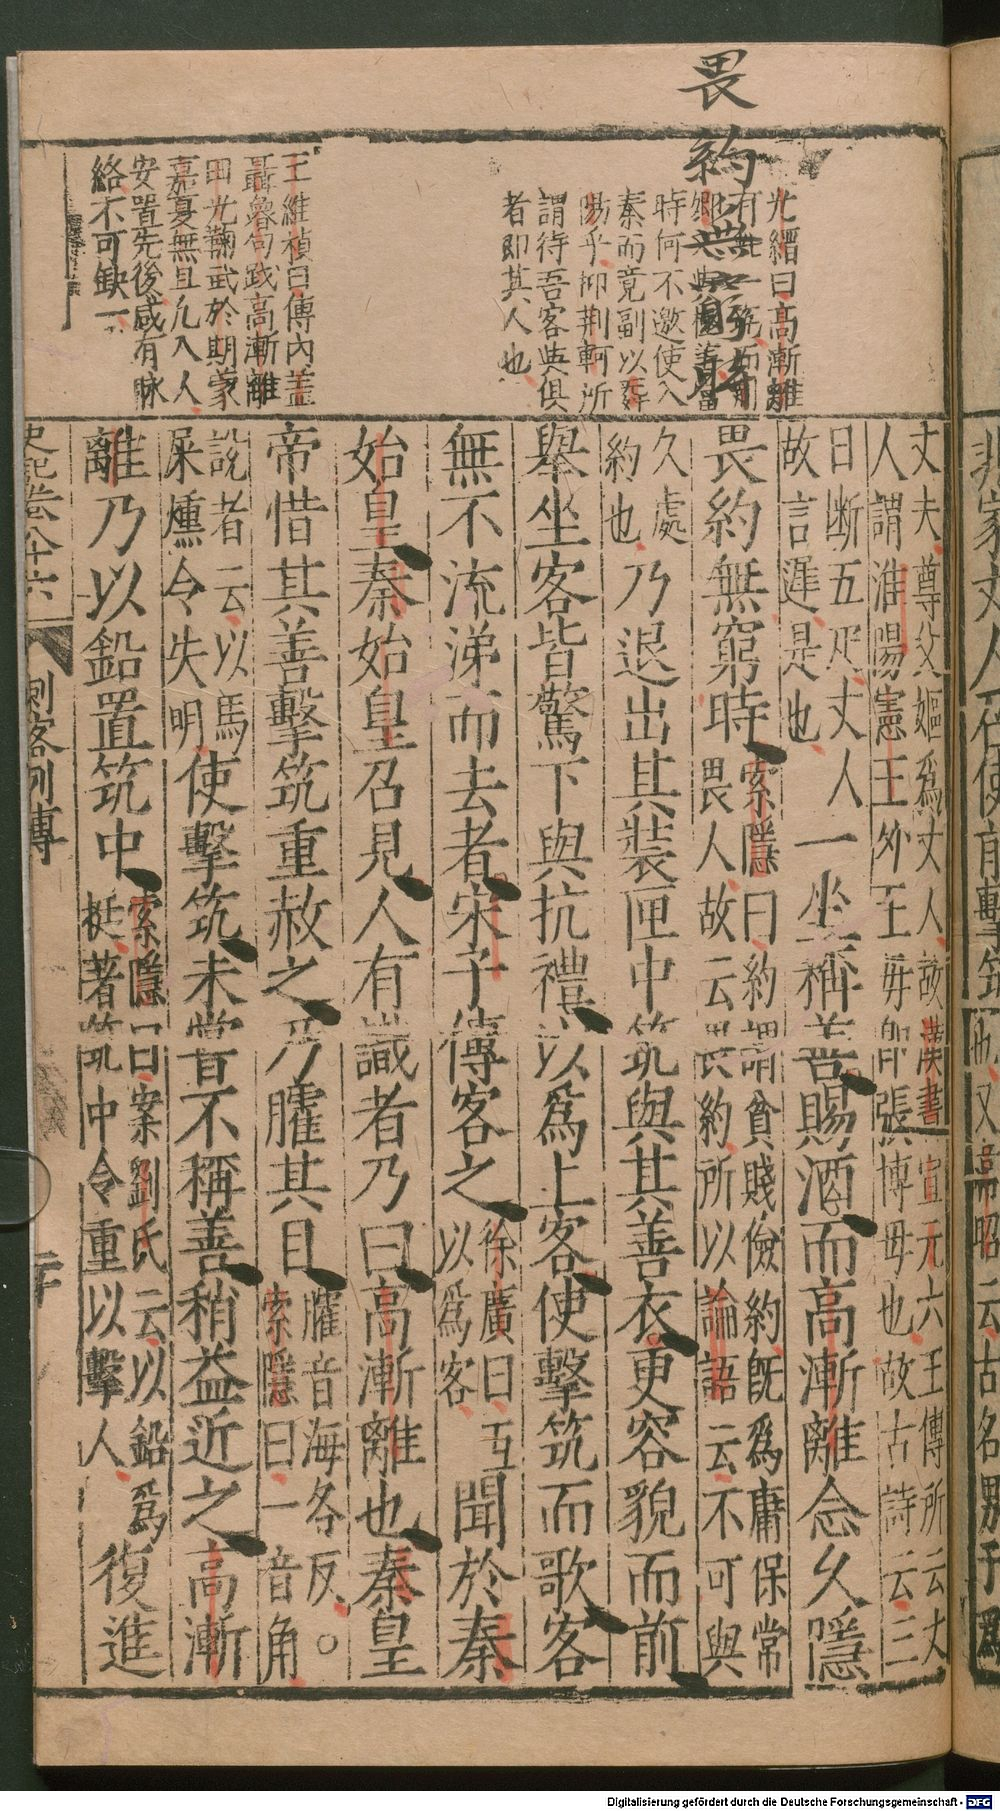 畏約無窮時
光縉曰高漸離
時何不邀使入
秦而竟副以舞
陽乎抑荆軻所
謂待吾客與俱
者即其人也
王維楨曰傳內蓋
聶魯句踐高漸離
田光鞠武於期蒙
嘉夏無且凡八人
安置先後咸有脉
絡不可缺一
丈夫尊父嫗爲丈人故漢書宣元六王傳所云丈
人謂淮陽憲王外王母卽張博母也故古詩云三
日断五疋丈人
故言遲是也
一坐稱善賜酒而高漸離念久隱
畏約無窮時
索隱曰約謂貧賤儉約旣爲庸保常
畏人故云畏約所以論語云不可與
久處
約也
乃退出其裝匣中筑與其善衣更容貌而前
舉坐客皆驚下與抗禮以爲上客使擊筑而歌客
無不流涕而去者宋子傳客之
徐廣曰互
以爲客
聞於秦
始皇秦始皇召見人有識者乃曰高漸離也秦皇
帝惜其善擊筑重赦之乃矐其目
矐音海各反○
索隱曰一音角
說者云以馬
屎燻令失明
使擊筑未嘗不稱善稍益近之高漸
離乃以鉛置筑中
索隱曰案劉氏云以鉛爲
挺著筑中令重以擊人
復進
史記卷八十六
刺客列傳
二十
Digitalisierung gefördert durch die Deutsche Forschungsgemeinschaft - DFG